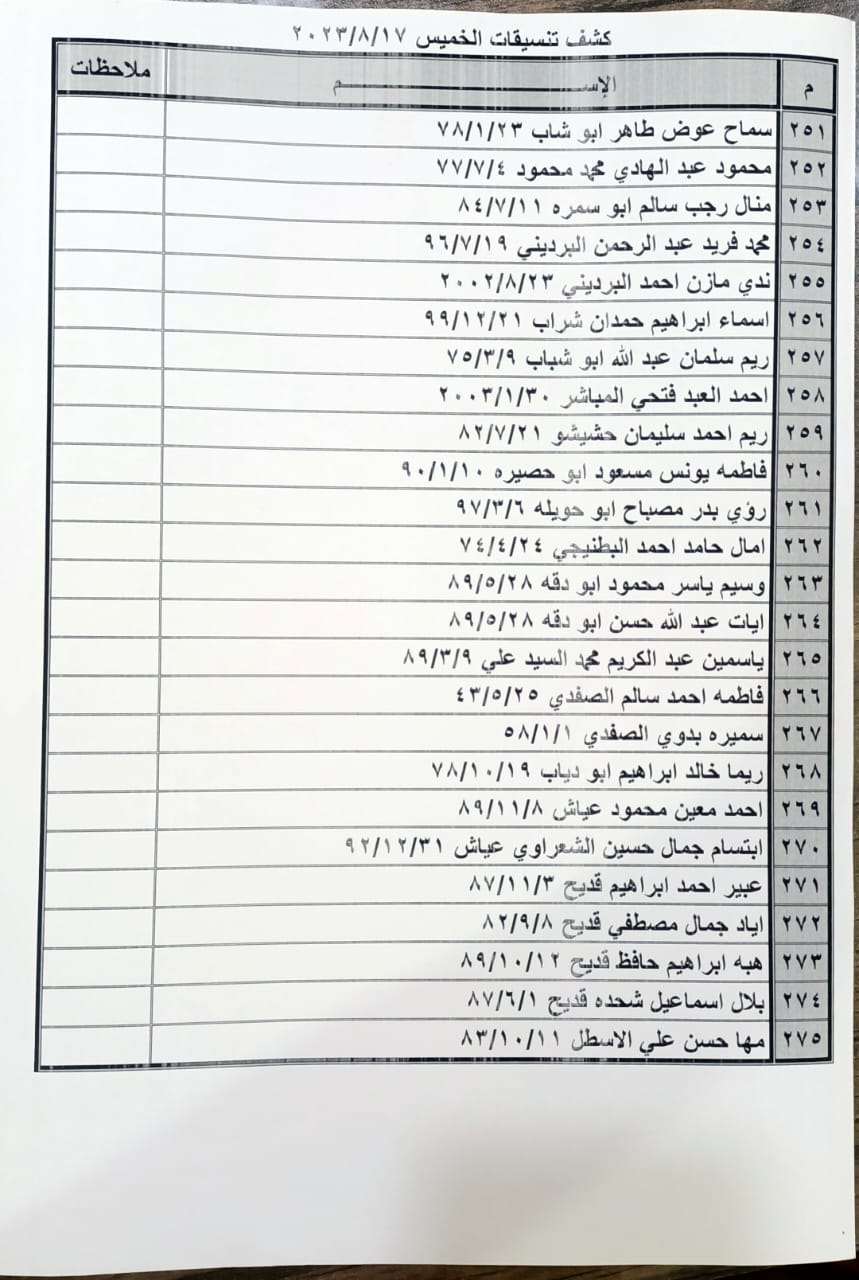 كشف تنسيقات الخميس ٢٠٢٣/٨/١٧
م الإســـــــــــــــم ملاحظات
٢٥١ سماح عوض طاهر ابو شاب ٧٨/١/٢٣
٢٥٢ محمود عبد الهادي محمد محمود ٧٧/٧/٤
٢٥٣ منال رجب سالم ابو سمره ٨٤/٧/١١
٢٥٤ محمد فريد عبد الرحمن البرديني ٩٦/٧/١٩
٢٥٥ ندي مازن احمد البرديني ٢٠٠٢/٨/٢٣
٢٥٦ اسماء ابراهيم حمدان شراب ٩٩/١٢/٢١
٢٥٧ ريم سلمان عبد الله ابو شباب ٧٥/٣/٩
٢٥٨ احمد العبد فتحي المباشر ٢٠٠٣/١/٣٠
٢٥٩ ريم احمد سليمان حشيشو ٨٢/٧/٢١
٢٦٠ فاطمه يونس مسعود ابو حصيره ٩٠/١/١٠
٢٦١ رؤي بدر مصباح ابو حويله ٩٧/٣/٦
٢٦٢ امال حامد احمد البطنيجي ٧٤/٤/٢٤
٢٦٣ وسيم ياسر محمود ابو دقه ٨٩/٥/٢٨
٢٦٤ ايات عبد الله حسن ابو دقه ٨٩/٥/٢٨
٢٦٥ ياسمين عبد الكريم محمد السيد علي ٨٩/٣/٩
٢٦٦ فاطمه احمد سالم الصفدي ٤٣/٥/٢٥
٢٦٧ سميره بدوي الصفدي ٥٨/١/١
٢٦٨ ريما خالد ابراهيم ابو دياب ٧٨/١٠/١٩
٢٦٩ احمد معين محمود عياش ٨٩/١١/٨
٢٧٠ ابتسام جمال حسين الشعراوي عياش ٩٢/١٢/٣١
٢٧١ عبير احمد ابراهيم قديح ٨٧/١١/٣
٢٧٢ اياد جمال مصطفي قديح ٨٢/٩/٨
٢٧٣ هبه ابراهيم حافظ قديح ٨٩/١٠/١٢
٢٧٤ بلال اسماعيل شحده قديح ٨٧/٦/١
٢٧٥ مها حسن علي الاسطل ٨٣/١٠/١١